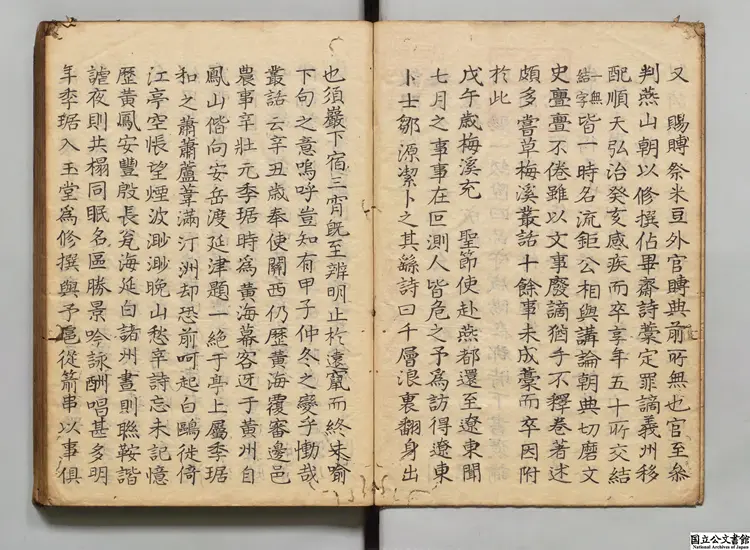 又　賜賻祭米豆外官賻典前所無也官至參
判燕山朝以修撰佔畢齋詩藁定罪謫義州移
配順天弘治癸亥感疾而卒享年五十所交結
一無結字皆一時名流鉅公相與講論朝典切磨文
史亹亹不倦雖以文事廢謫猶手不釋卷著述
頗多嘗草梅溪叢話十餘事未成藁而卒因附
於此
戊午歲梅溪充　聖節使赴燕都還至遼東聞
七月之事事在叵測人皆危之予爲訪得遼東
卜士鄒源潔卜之其繇詩曰千層浪裏翻身出
也須巖下宿三宵旣至辨明止於遠竄而終未喻
下句之意嗚呼豈知有甲子仲冬之變乎慟哉
叢話云辛丑歲奉使關西仍歷黃海覆審邊邑
農事辛壯元季琚時爲黃海幕客迓于黃州自
鳳山偕向安岳渡延津題一絶于亭上屬季琚
和之蕭蕭蘆葦滿汀洲却恐前呵起白鷗徙倚
江亭空悵望煙波渺渺晚山愁辛詩忘未記憶
歷黃鳳安豊殷長瓮海延白諸州晝則聯鞍諧
謔夜則共榻同眠名區勝景吟詠酬唱甚多明
年季琚入玉堂爲修撰與予扈從箭串以事俱
国立公文書館
National Archives of Japan